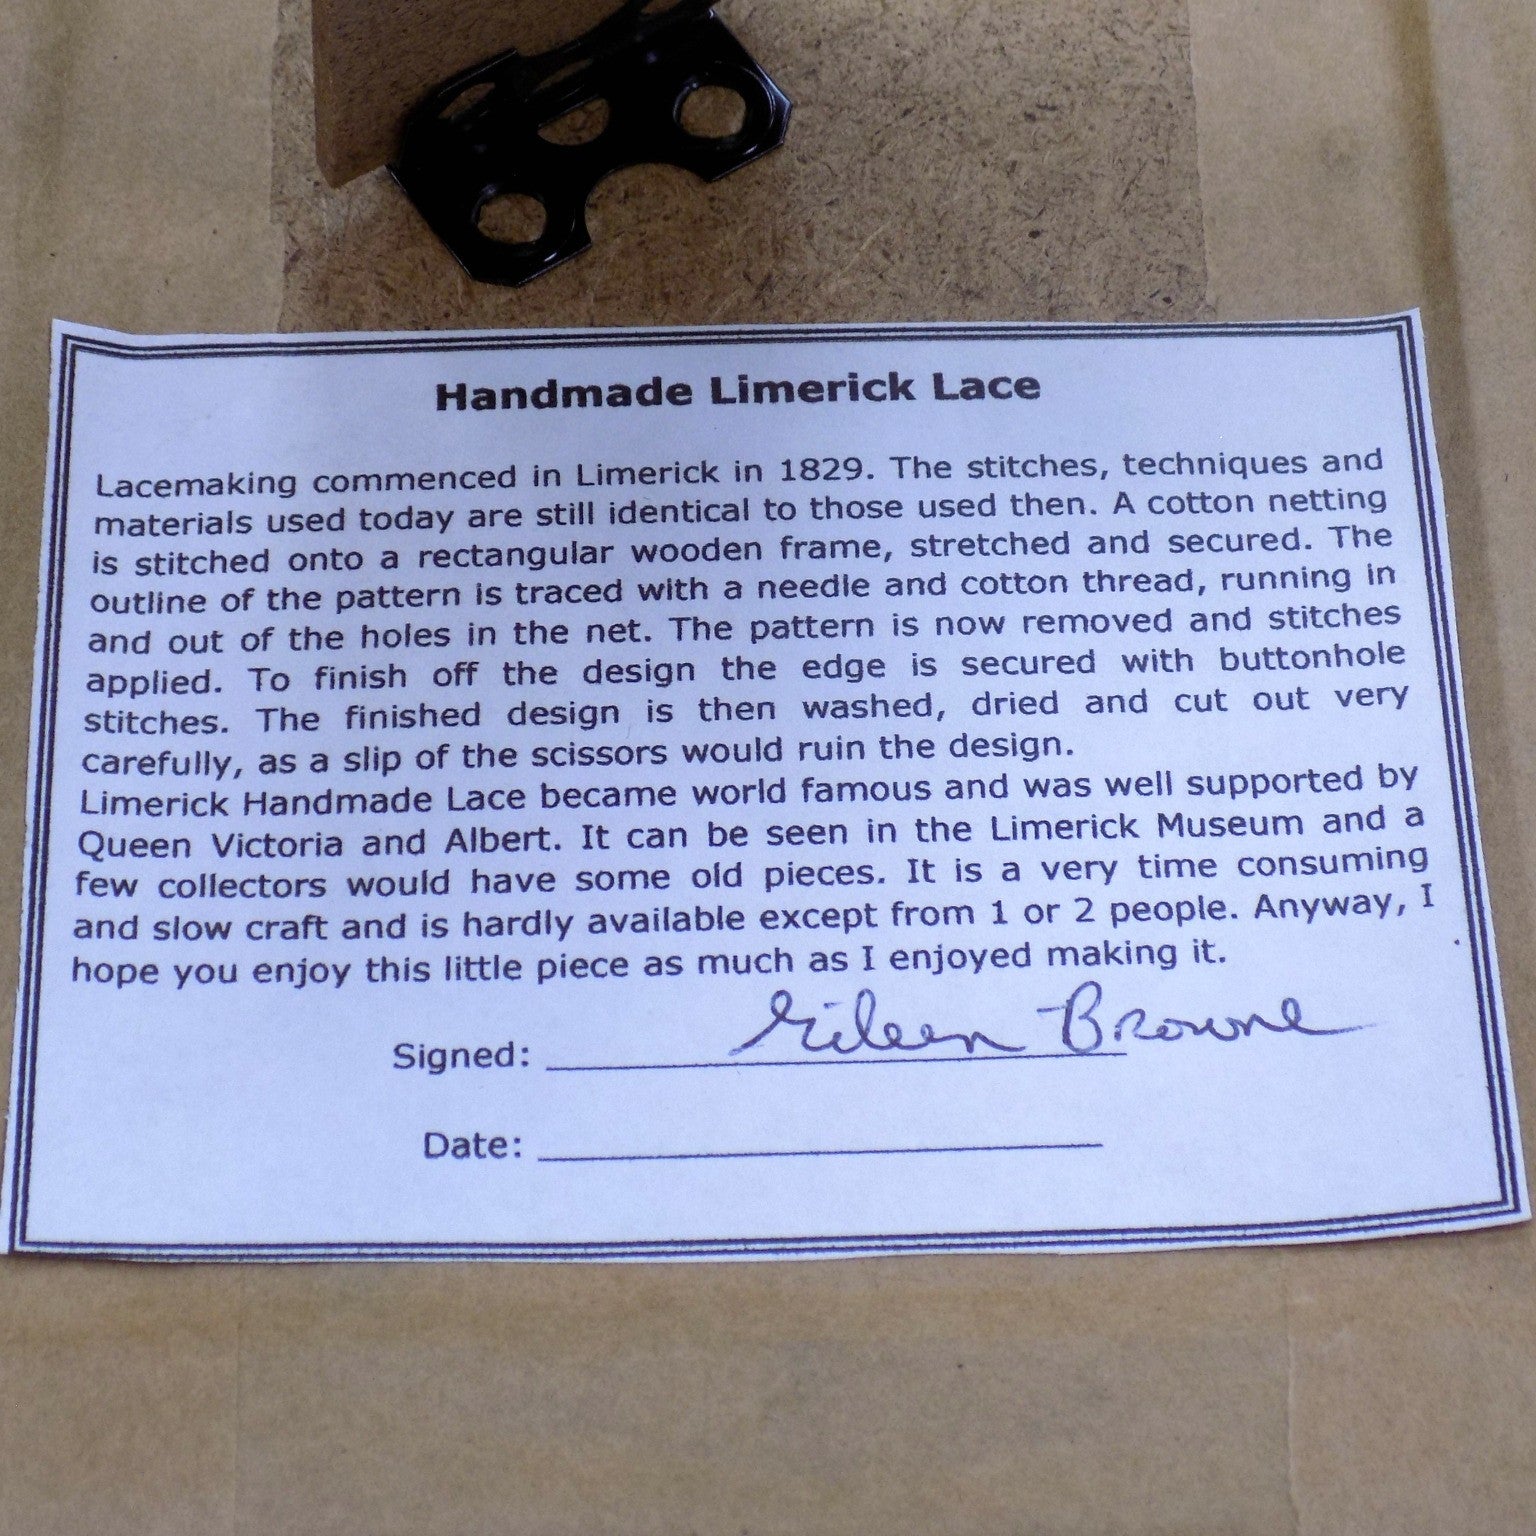 Handmade Limerick Lace
Lacemaking commenced in Limerick in 1829. The stitches, techniques and
materials used today are still identical to those used then. A cotton netting
is stitched onto a rectangular wooden frame, stretched and secured. The
outline of the pattern is traced with a needle and cotton thread, running in
and out of the holes in the net. The pattern is now removed and stitches
applied. To finish off the design the edge is secured with buttonhole
stitches. The finished design is then washed, dried and cut out very
carefully, as a slip of the scissors would ruin the design.
Limerick Handmade Lace became world famous and was well supported by
Queen Victoria and Albert. It can be seen in the Limerick Museum and a
few collectors would have some old pieces. It is a very time consuming
and slow craft and is hardly available except from 1 or 2 people. Anyway, I
hope you enjoy this little piece as much as I enjoyed making it.
Signed: Eileen Browne
Date: